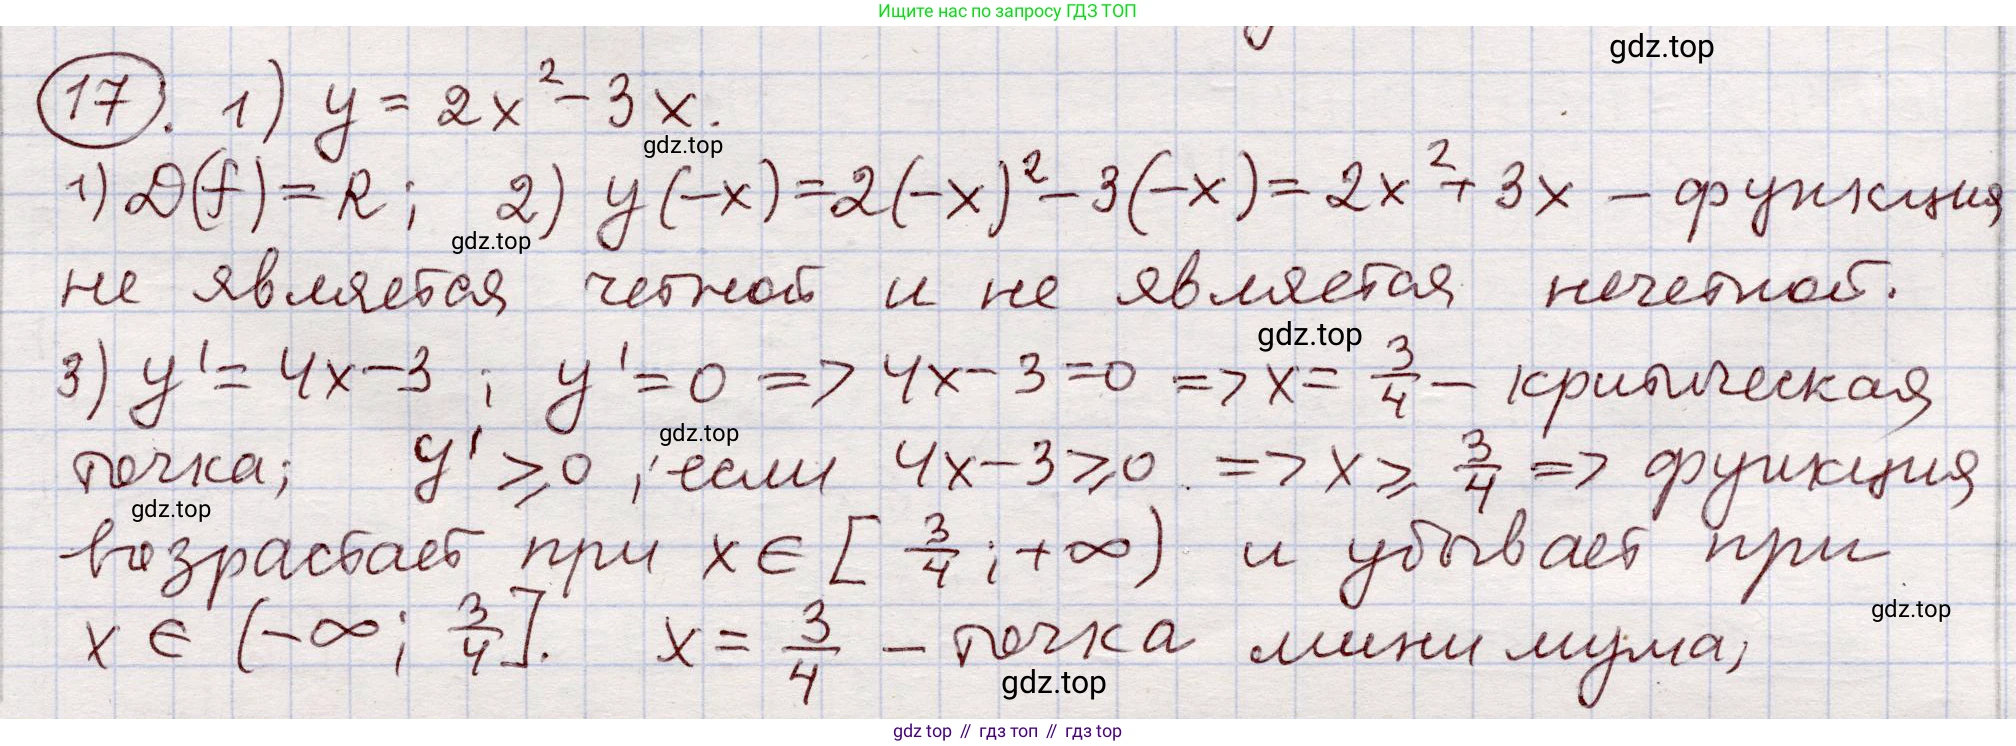 Ищите нас по запросу ГДЗ ТОП
gdz.top
17. 1) y = 2x² - 3x.
gdz.top
1) D(f) = R; 2) y(-x) = 2(-x)² - 3(-x) = 2x² + 3x - функция
gdz.top
не является четной и не является нечетной.
gdz.top
3) y' = 4x - 3; y' = 0 => 4x - 3 = 0 => x = 3/4 - критическая
gdz.top
точка; y' ⩾ 0, если 4x - 3 ⩾ 0 => x ⩾ 3/4 => функция
gdz.top
возрастает при x ∈ [3/4; +∞) и убывает при
gdz.top
x ∈ (-∞; 3/4]. x = 3/4 - точка минимума;
gdz.top
gdz.top // гдз топ // гдз top